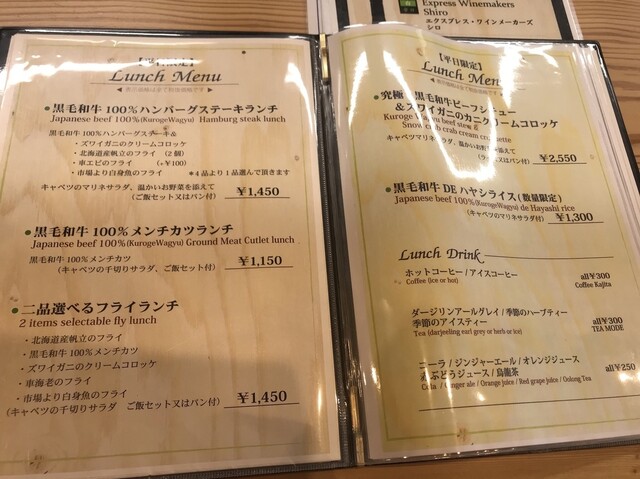 Express Winemakers
Shiro
エクスプレス・ワインメーカーズ
シロ
【平日限定】
Lunch Menu
◀ 表示価格は全て税抜価格です ▶
●黒毛和牛 100%ハンバーグステーキランチ
Japanese beef 100%(KurogeWagyu) Hamburg steak lunch
黒毛和牛 100%ハンバーグステーキ&
・ズワイガニのクリームコロッケ
・北海道産帆立のフライ (2個)
・車エビのフライ (+¥100)
・市場より白身魚のフライ *4品より1品選んで頂きます
キャベツのマリネサラダ、温かいお野菜を添えて
(ご飯セット又はパン付) ¥1,450
●黒毛和牛 100%メンチカツランチ
Japanese beef 100%(KurogeWagyu) Ground Meat Cutlet lunch
黒毛和牛 100%メンチカツ
(キャベツの千切りサラダ、ご飯セット付) ¥1,150
●二品選べるフライランチ
2 items selectable fly lunch
・北海道産帆立のフライ
・黒毛和牛 100%メンチカツ
・ズワイガニのクリームコロッケ
・車海老のフライ
・市場より白身魚のフライ
(キャベツの千切りサラダ ご飯セット又はパン付) ¥1,450
【平日限定】
Lunch Menu
●究極の黒毛和牛ビーフシチュー
&ズワイガニのカニクリームコロッケ
Kuroge Wagyu beef stew &
Snow crab crab cream croquette
キャベツマリネサラダ、温かいお野菜を添えて
パン付) ¥2,550
●黒毛和牛 DE ハヤシライス(数量限定)
Japanese beef 100%(KurogeWagyu) de Hayashi rice
(キャベツのマリネサラダ付) ¥1,300
Lunch Drink
ホットコーヒー / アイスコーヒー all¥300
Coffee (ice or hot) Coffee Kajita
ダージリンアールグレイ / 季節のハーブティー
季節のアイスティー all¥300
Tea (darjeeling earl grey or herb or ice) TEA MODE
コーラ / ジンジャーエール / オレンジジュース
赤ぶどうジュース / 烏龍茶 all¥250
Cola / Ginger ale / Orange juice / Red grape juice / Oolung Tea